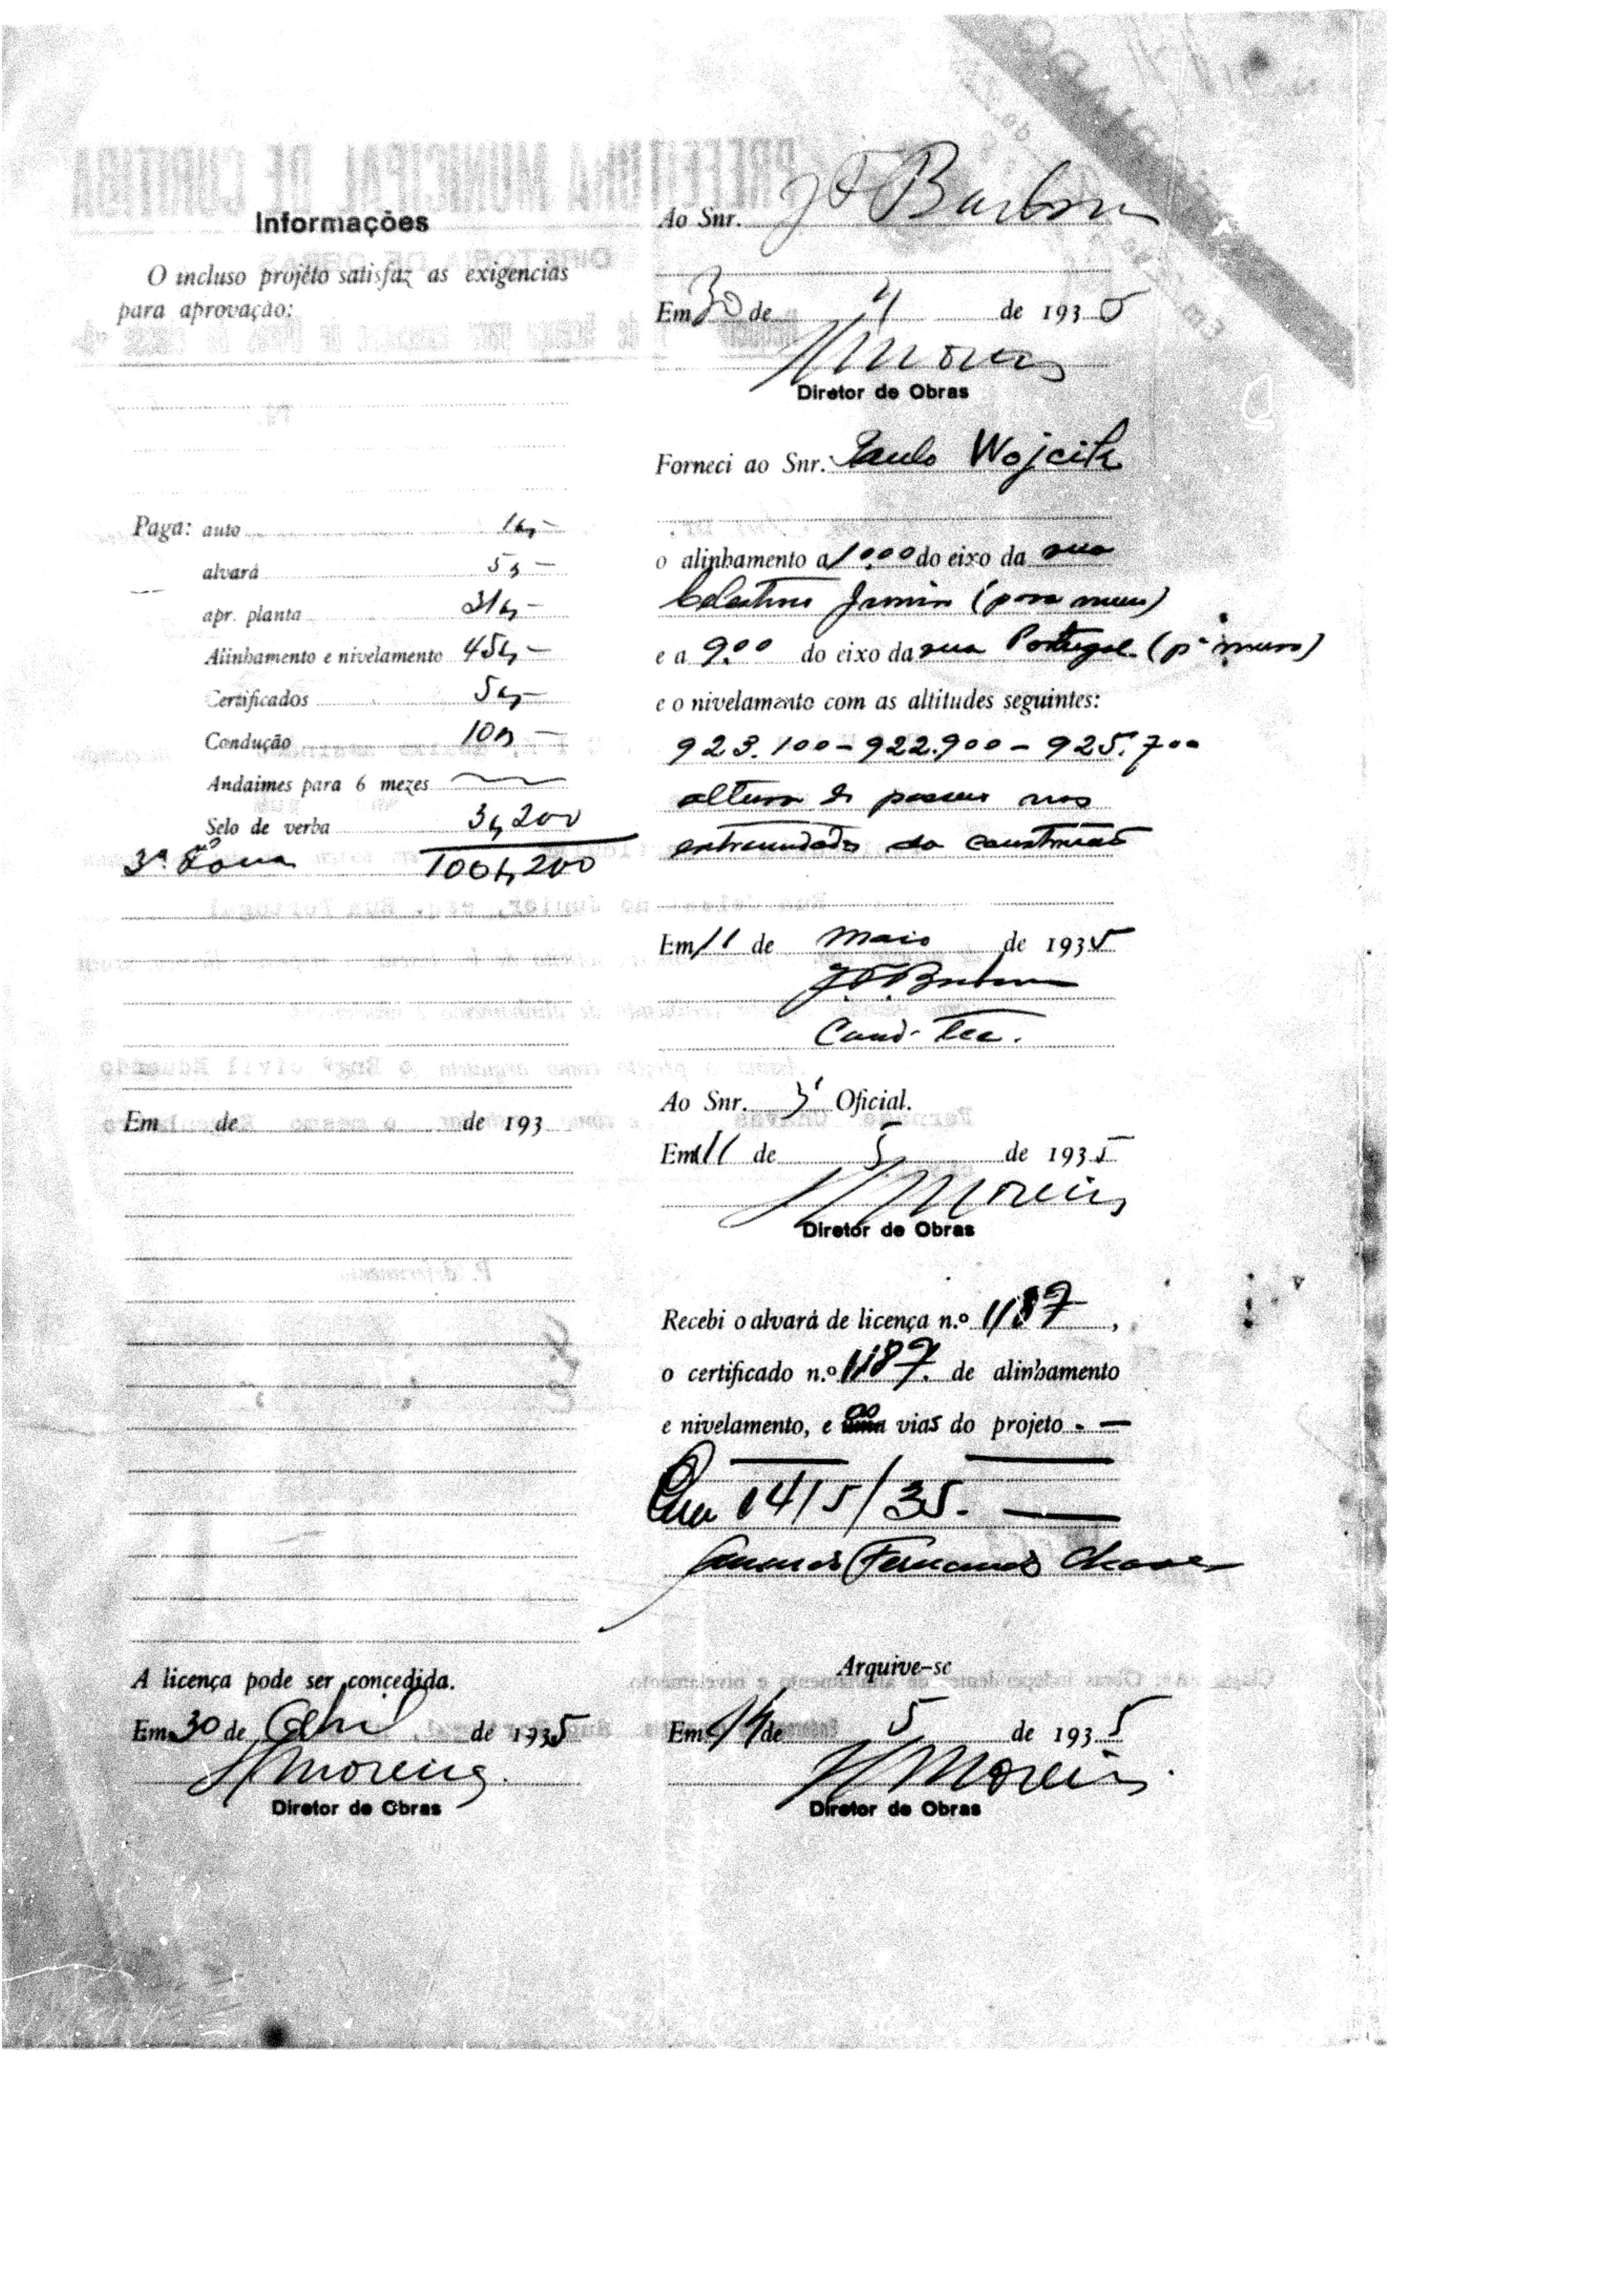 Informações
O incluso projéto satisfaz as exigencias
para aprovação:
Paga: auto 1$ —
alvará 5$ —
apr. planta 31$ —
Alinhamento e nivelamento 45$ —
Certificados 5$ —
Condução 10$ —
Andaimes para 6 mezes
Selo de verba 3$200
3ª Zona 100$200
Em de de 193
A licença pode ser concedida.
Em 30 de Abril de 1935
Moreira
Diretor de Obras
Ao Snr.
Em 30 de 4 de 1935
Diretor de Obras
Forneci ao Snr. Paulo Wojcik
o alinhamento a do eixo da rua
Celestino Junior (para muro)
e a 9.00 do eixo da rua Portugal (pª muro)
e o nivelamento com as altitudes seguintes:
923.100 – 922.900 – 925.700
altura do passeio nas
extremidades da construção
Em 11 de Maio de 1935
Cond. Tec.
Ao Snr. 3º Oficial.
Em 11 de 5 de 1935
Moreira
Diretor de Obras
Recebi o alvará de licença n.º 1187,
o certificado n.º 1187. de alinhamento
e nivelamento, e as vias do projeto. —
Em 14/5/35. —
Fernando Chaves
Arquive-se
Em 14 de 5 de 1935
Moreira
Diretor de Obras